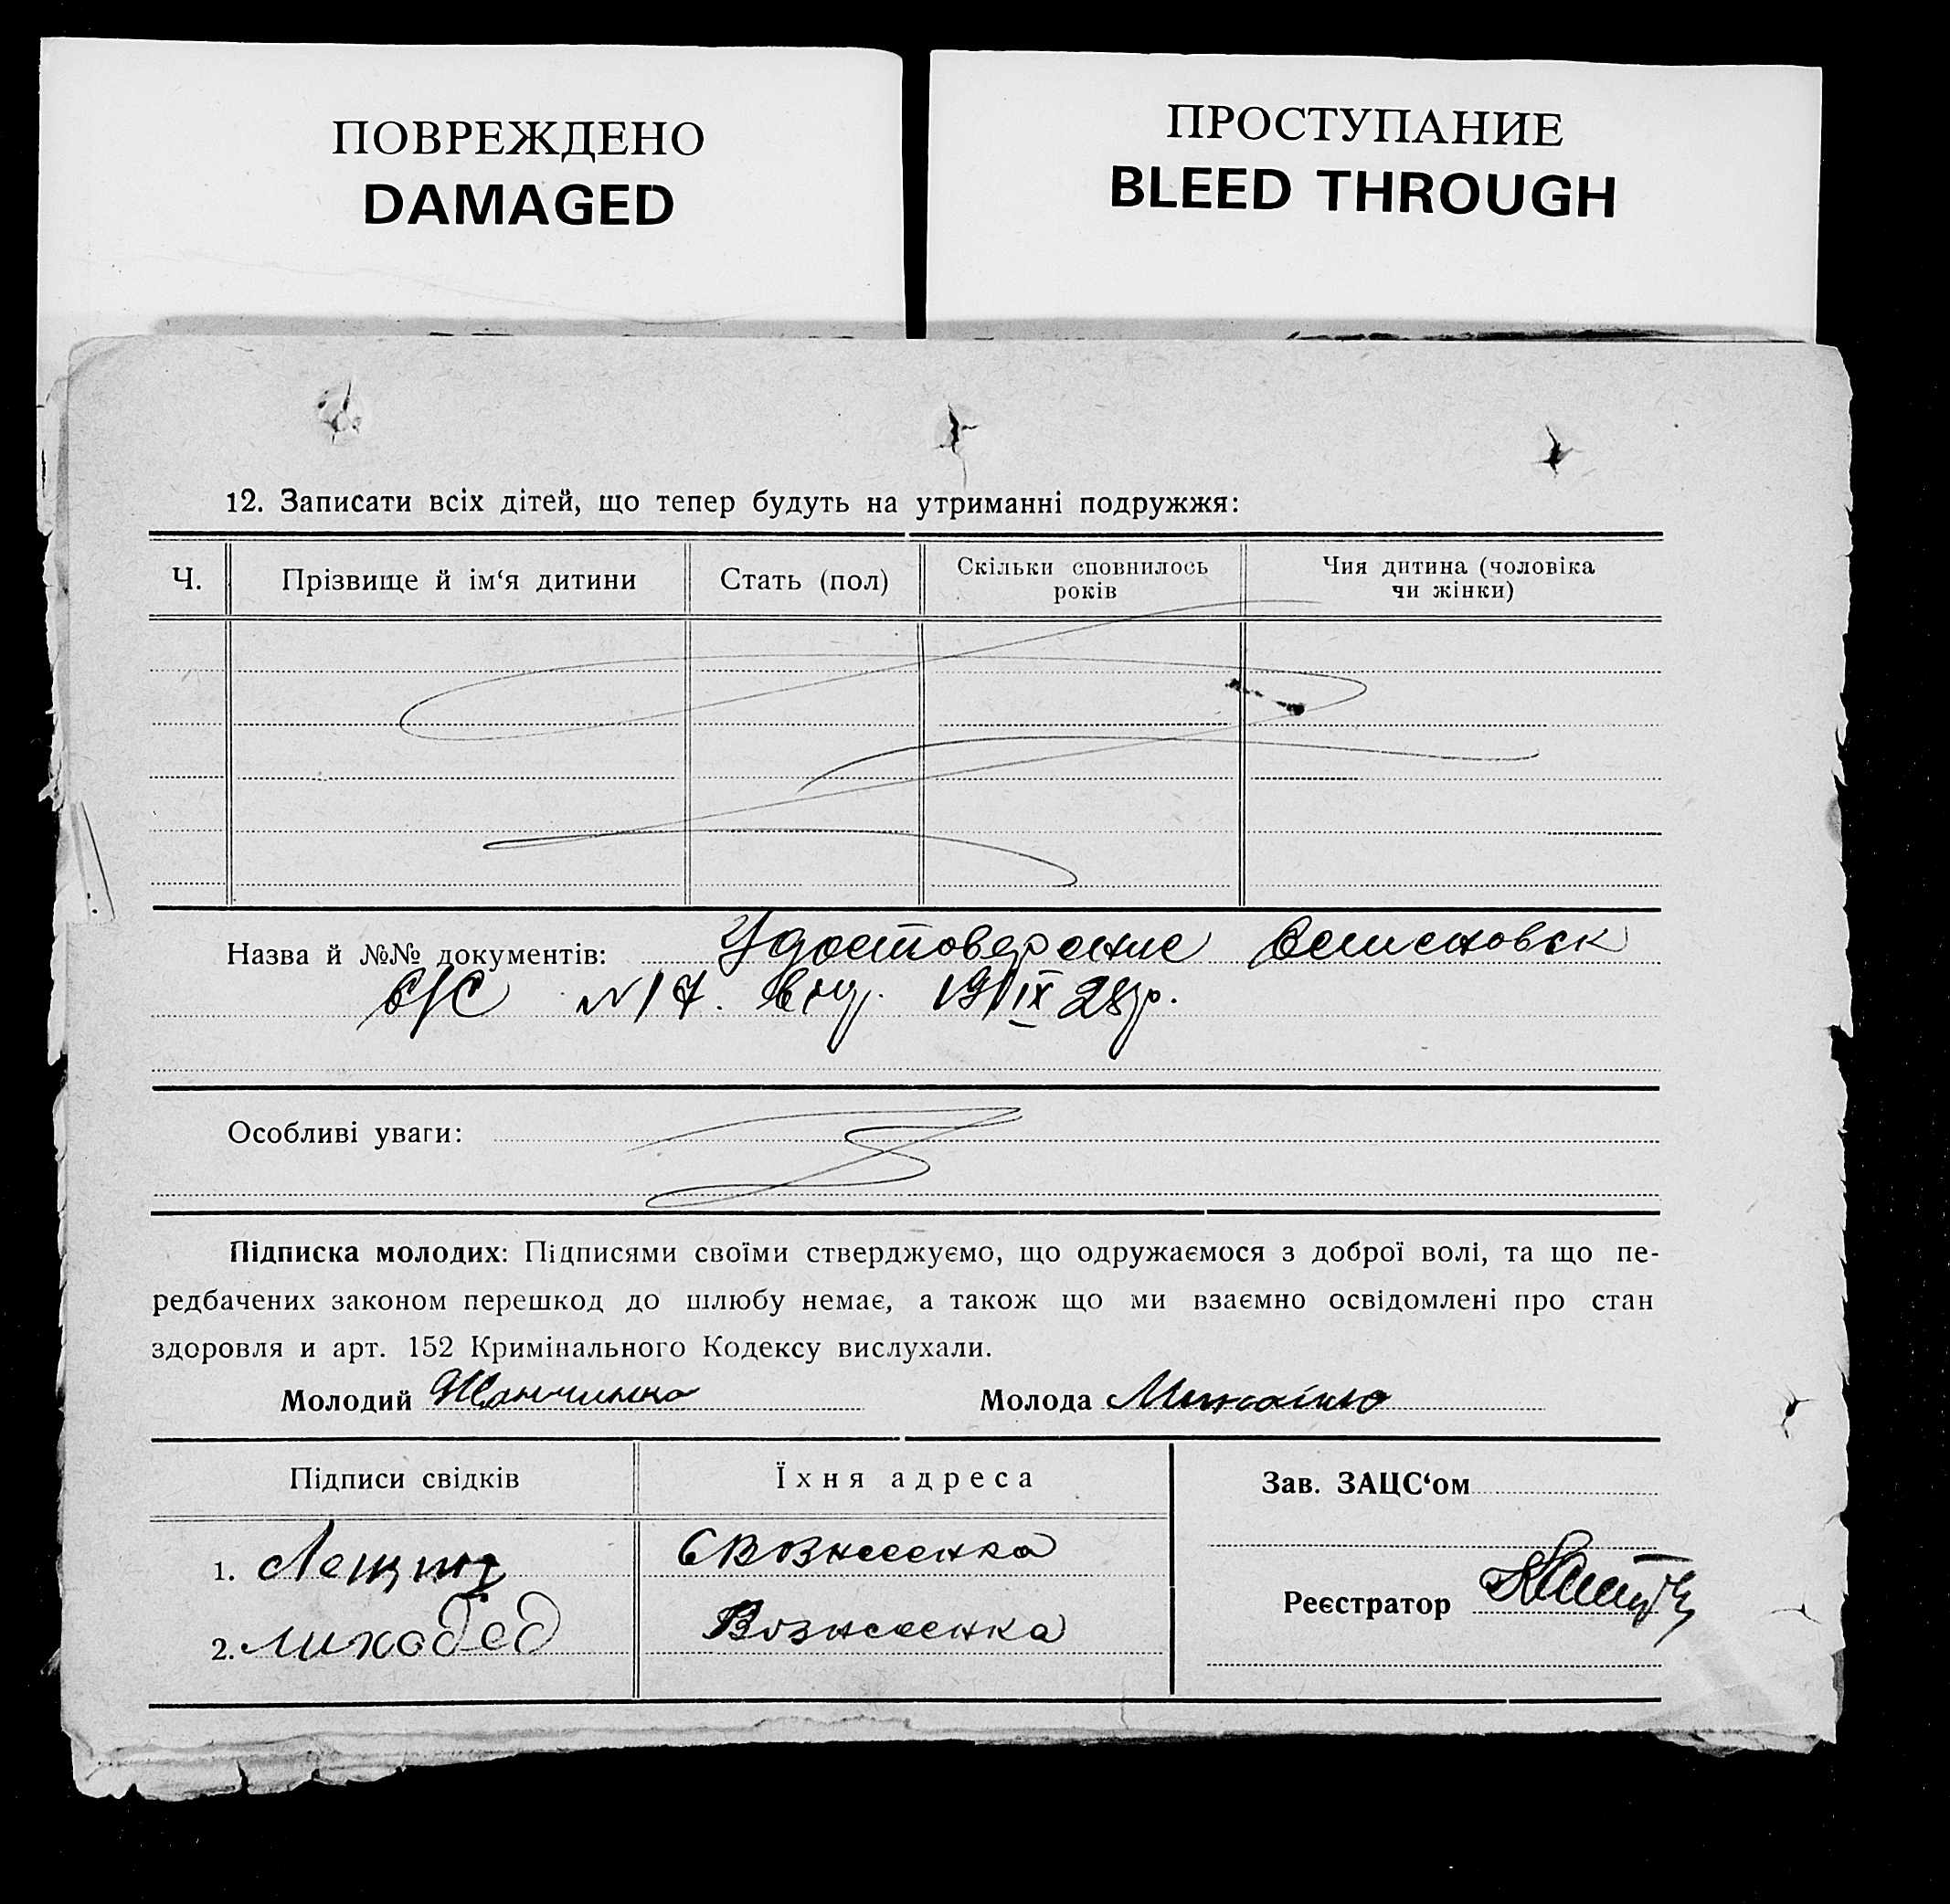 ПОВРЕЖДЕНО
DAMAGED
ПРОСТУПАНИЕ
BLEED THROUGH
12. Записати всіх дітей, що тепер будуть на утриманні подружжя:
Ч. Прізвище й ім‘я дитини Стать (пол) Скільки сповнилось років Чия дитина (чоловіка чи жінки)
Назва й №№ документів: Удостоверение
с/с N 17. выд. 19/IX 28р.
Особливі уваги:
Підписка молодих: Підписями своїми стверджуємо, що одружаємося з доброї волі, та що пе-
редбачених законом перешкод до шлюбу немає, а також що ми взаємно освідомлені про стан
здоровля и арт. 152 Кримінального Кодексу вислухали.
Молодий Молода
Підписи свідків Їхня адреса Зав. ЗАЦС‘ом
1. С Вознесенка
2. лиходед Вознесенка
Реєстратор